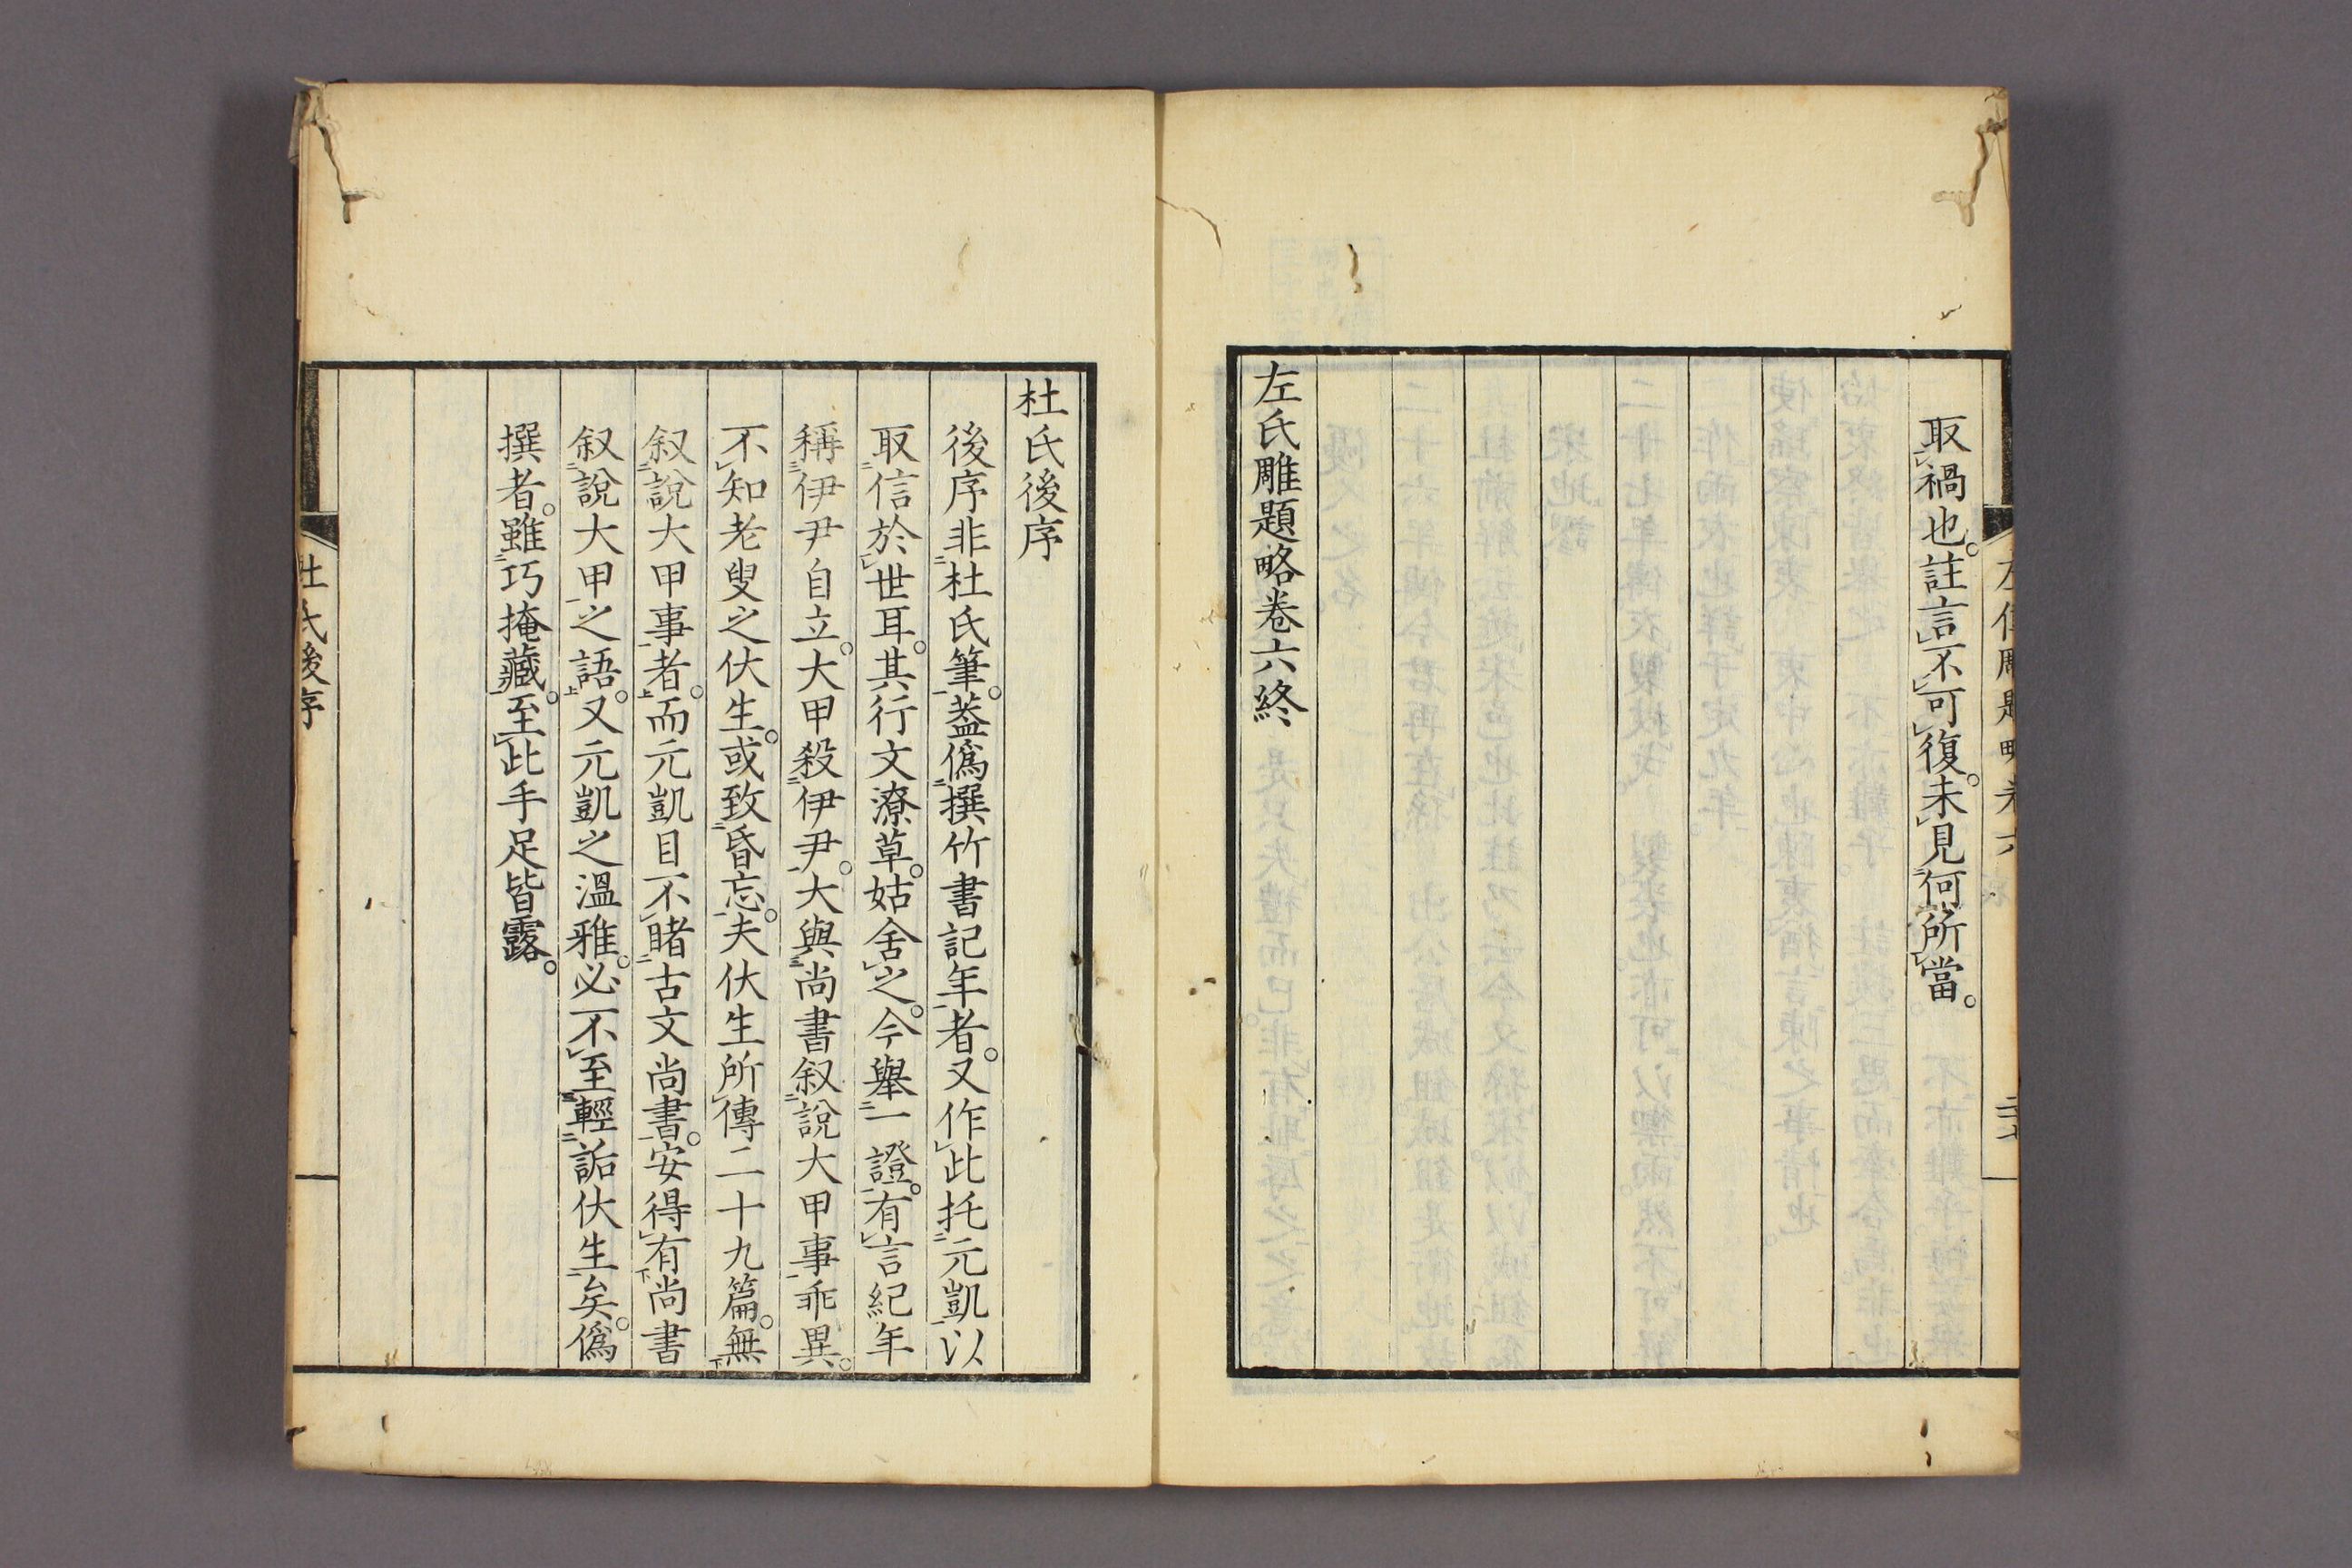 取禍也。註言不可復。未見何所當。
左氏雕題略卷六終
杜氏後序
後序非杜氏筆。葢僞撰竹書記年者。又作此托元凱以
取信於世耳。其行文潦草。姑舍之。今舉一證。有言紀年
稱伊尹自立。大甲殺伊尹。大與尚書叙說大甲事乖異。
不知老叟之伏生。或致昏忘。夫伏生所傳二十九篇。無
叙說大甲事者。而元凱目不睹古文尚書。安得有尚書
叙說大甲之語。又元凱之溫雅。必不至輕詬伏生矣。僞
撰者。雖巧掩藏。至此手足皆露。
杜氏後序